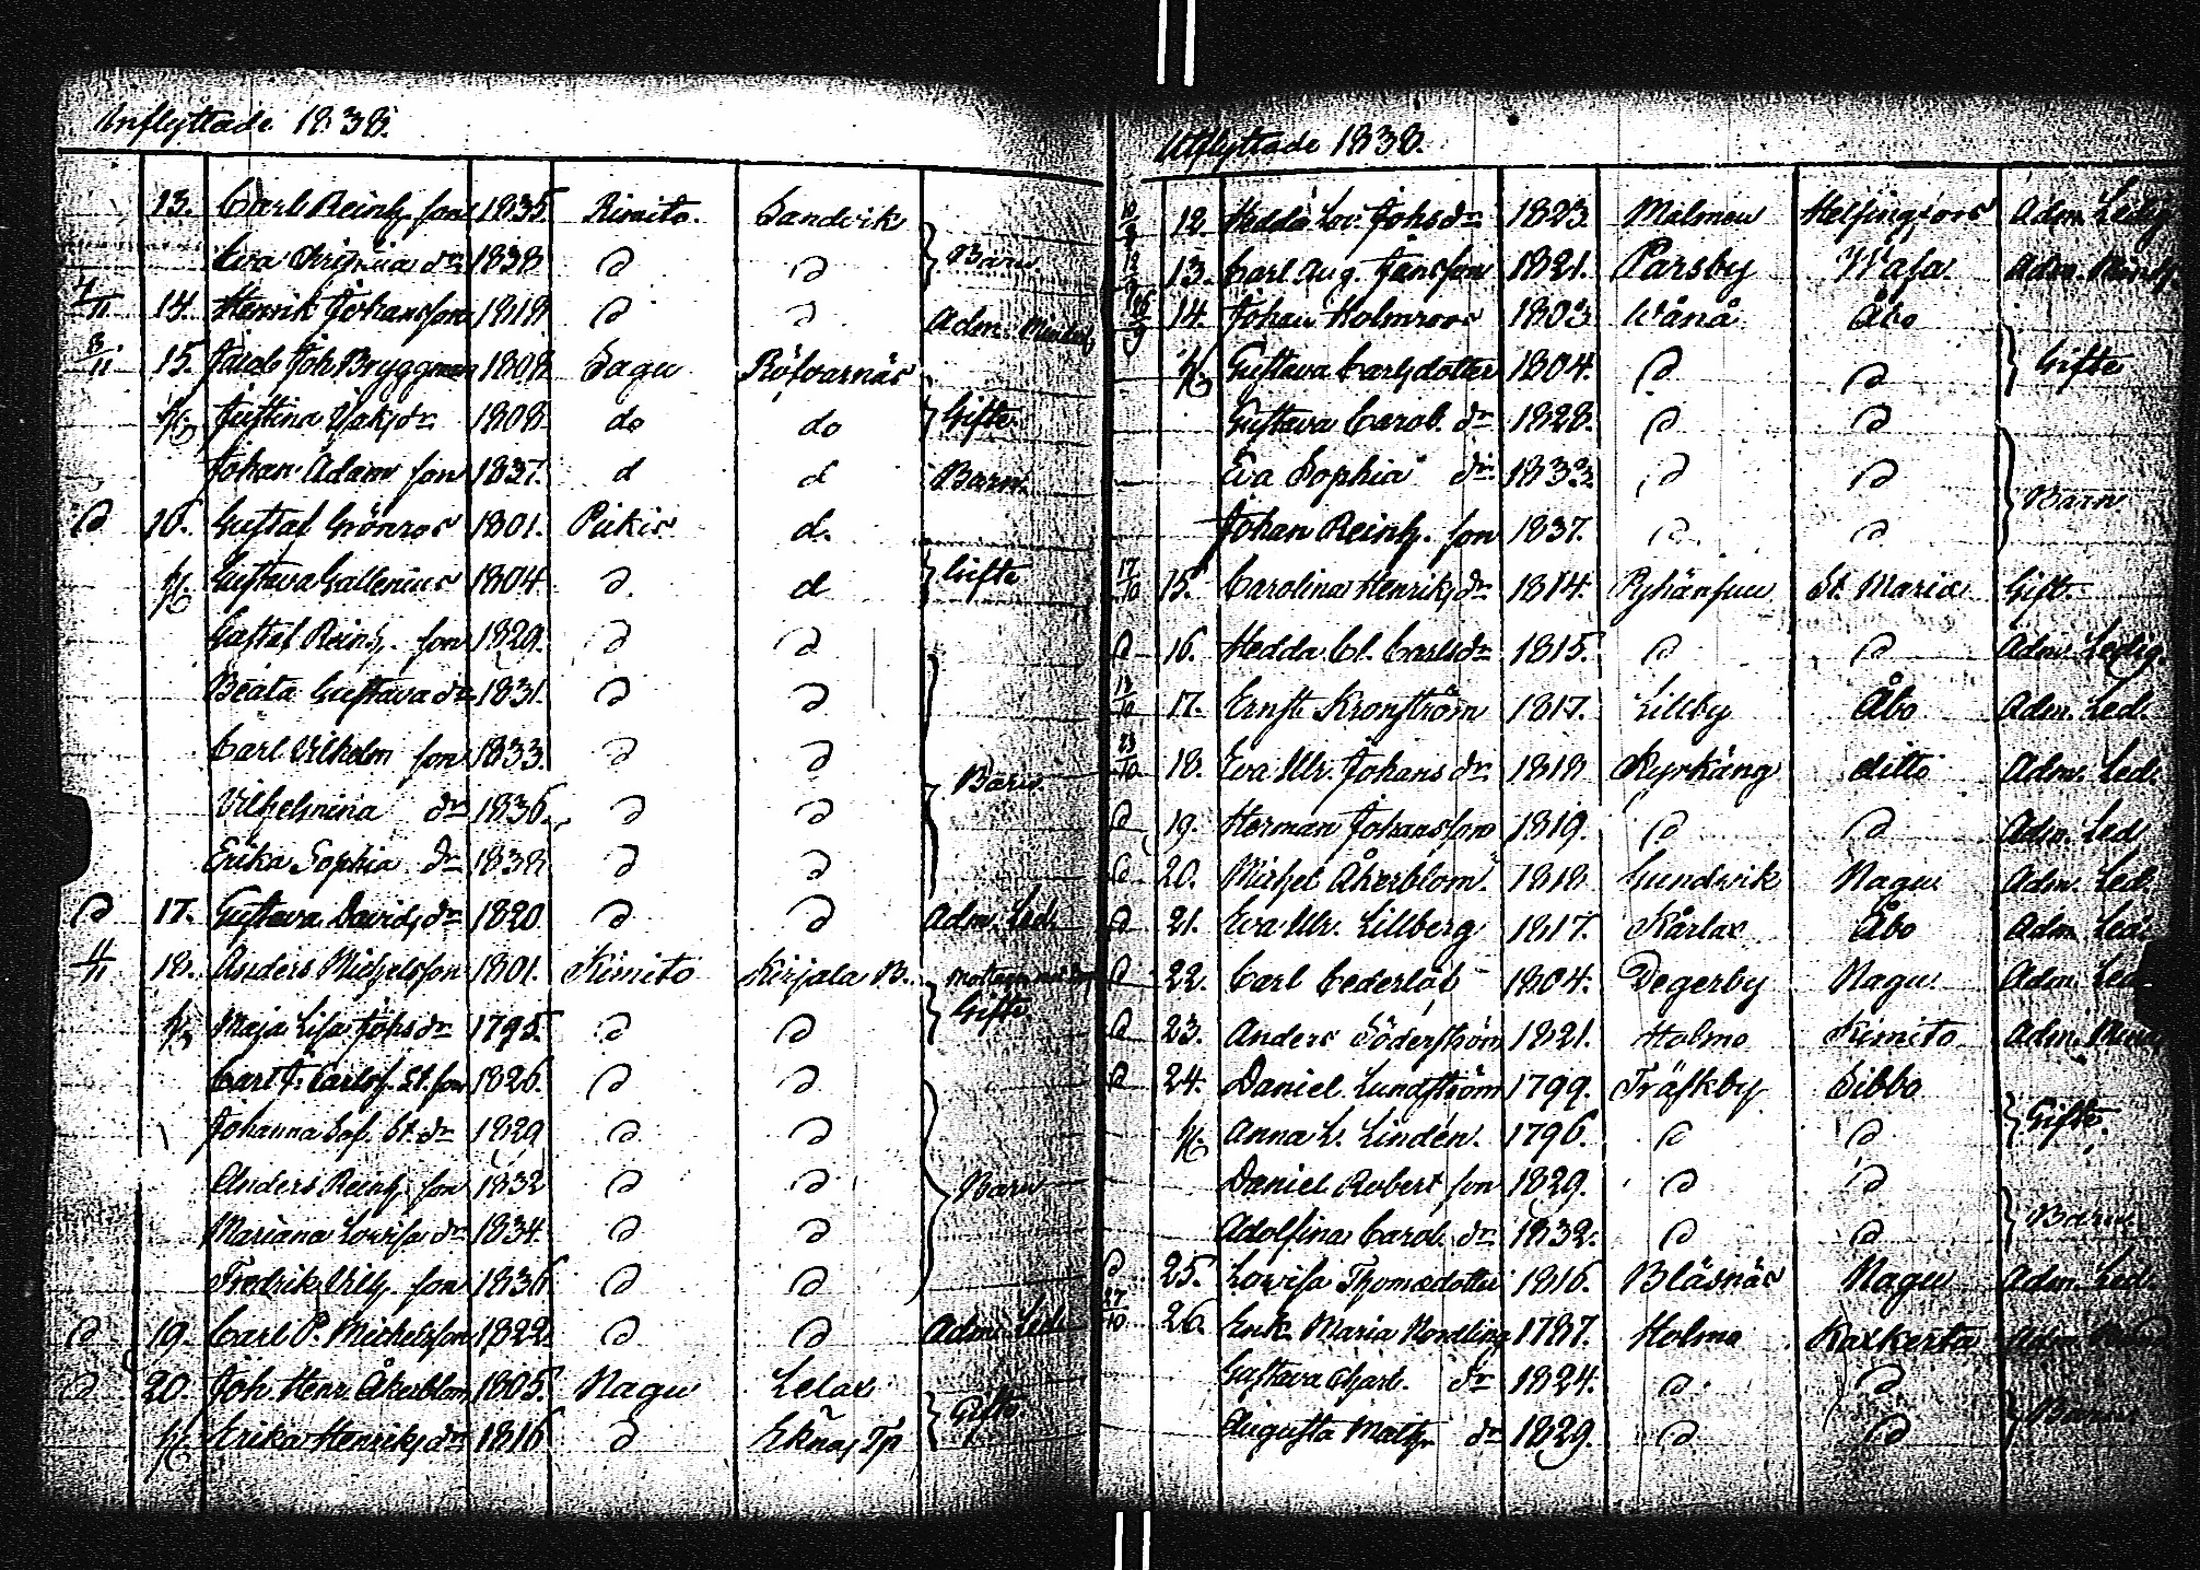 Inflyttade 1838.
13. Carl Reinh. son 1835. Rimito. Sandvik
Eva Christina dr 1838 d d Barn
7/11 14. Henrik Johansson 1818 d d Adm. Mindr
8/11 15. Jacob Joh. Bryggman 1808 Sagu Röfvarnäs
h. Justina Isaksdr 1808 do do Gifte
Johan Adam son 1837. d d Barn.
d 16. Gustaf Grönros 1801. Piikis d.
h. Gustava Gallenius 1804. d. d Gifte
Gustaf Reinh. son 1829. d d
Beata Gustava dr 1831. d d
Carl Vilhelm son 1833. d d
Vilhelmina dr 1836. d d Barn
Erika Sophia dr 1838 d d
d 17. Gustava Davidsdr 1820 d d Adm. Led.
11/11 18. Anders Michelsson 1801. Kimito Kirjala B.
h. Maja Lisa Johsdr 1795. d d Gifte
Carl J. Carlss. St. son 1826. d d
Johanna Sof. St. dr 1829 d d
Anders Reinh. son 1832 d d Barn
Mariana Lovisa dr 1834. d d
Fredrik Vilh. son 1836 d d
d 19. Carl P. Michelsson 1822. d d Adm. Led.
d 20. Joh. Henr. Åkerblom 1805. Nagu Lelax
h. Erika Henriksdr 1816 d Eknäs Tp Gifte
Utflyttade 1838.
12. Hedda Lov. Johsdr 1823. Malmen Helsingfors Adm. Ledig
13. Carl Aug. Jansson 1821. Parsby Wasa. Adm. Mindr.
16/9 14. Johan Holmroos 1803 Wånå Åbo
h. Gustava Carlsdotter 1804. d d Gifte
Gustava Carol. dr 1828. d d
Eva Sophia dr 1833. d d
Johan Reinh. son 1837. d d Barn
17/10 15. Carolina Henriksdr 1814. Pyhänsuu St. Mariæ Gift
d 16. Hedda Cl. Carlsdr 1815. d d Adm. Ledig.
18/10 17. Ernst Kronström 1817. Lillby Åbo Adm. Led.
23/10 18. Eva Ulr. Johansdr 1818 Kyrkäng ditto Adm. Led.
d 19. Herman Johansson 1819. d d Adm. Led
d 20. Michel Åkerblom. 1818 Gundvik Nagu Adm. Led.
d 21. Eva Ulr. Lillberg 1817. Kårlax Åbo Adm. Led.
d 22. Carl Cederlöf 1804. Degerby Nagu Adm. Led
d 23. Anders Söderström 1821. Holmo Kimito Adm.
d 24. Daniel Lundström 1799. Träskby Sibbo
h. Anna L. Lindén. 1796. d d Gifte
Daniel Robert son 1829. d d
Adolfina Carol. dr 1832. d d Barn
d 25. Lovisa Thomsdotter 1816. Bläsnäs Nagu Adm. Led
27/10 26. Enk. Maria Nordling 1787. Holmo Kaxkerta Adm.
Gustava Charl. dr 1824. d d
Augusta Math. dr 1829. d d Barn